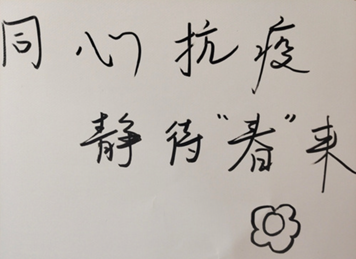 同心抗疫
静待"春"来